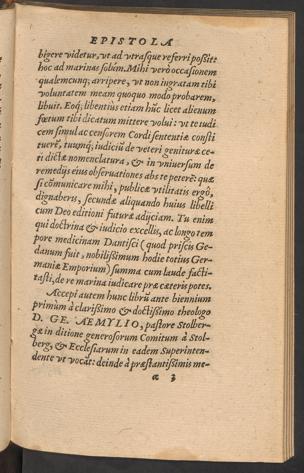 EPISTOLA
bigere videtur, vt ad vtrasque referri poßit:
hoc ad marinas solùm. Mihi verò occasionem
qualemcunq; arripere, vt non ingratam tibi
voluntatem meam quoquo modo probarem,
libuit. Eoq́; libentiùs etiam hûc licet alienum
fœtum tibi dicatum mittere volui: vt te iudi
cem simul ac censorem Cordi sententiæ consti
tuerē, tuumq́; iudiciū de veteri genituræ ce-
ti dictæ nomenclatura, & in vniuersum de
remedijs eius obseruationes abs te peterē: quæ
si cōmunicare mihi, publicæ vtilitatis ergô,
dignaberis, secundæ aliquando huius libelli
cum Deo editioni futuræ adijciam. Tu enim
qui doctrina & iudicio excellis, ac longo tem
pore medicinam Dantisci (quod priscis Ge-
danum fuit, nobilißimum hodie totius Ger-
maniæ Emporium) summa cum laude facti-
tasti, de re marina iudicare præ cæteris potes.
Accepi autem hunc librū ante biennium
primùm à clarißimo & doctißimo theologo
D. GE. AEMYLIO, pastore Stolber-
gæ in ditione generosorum Comitum à Stol-
berg, & Ecclesiarum in eadem Superinten-
dente vt vocāt: deinde à præstantißimis me-
a 3